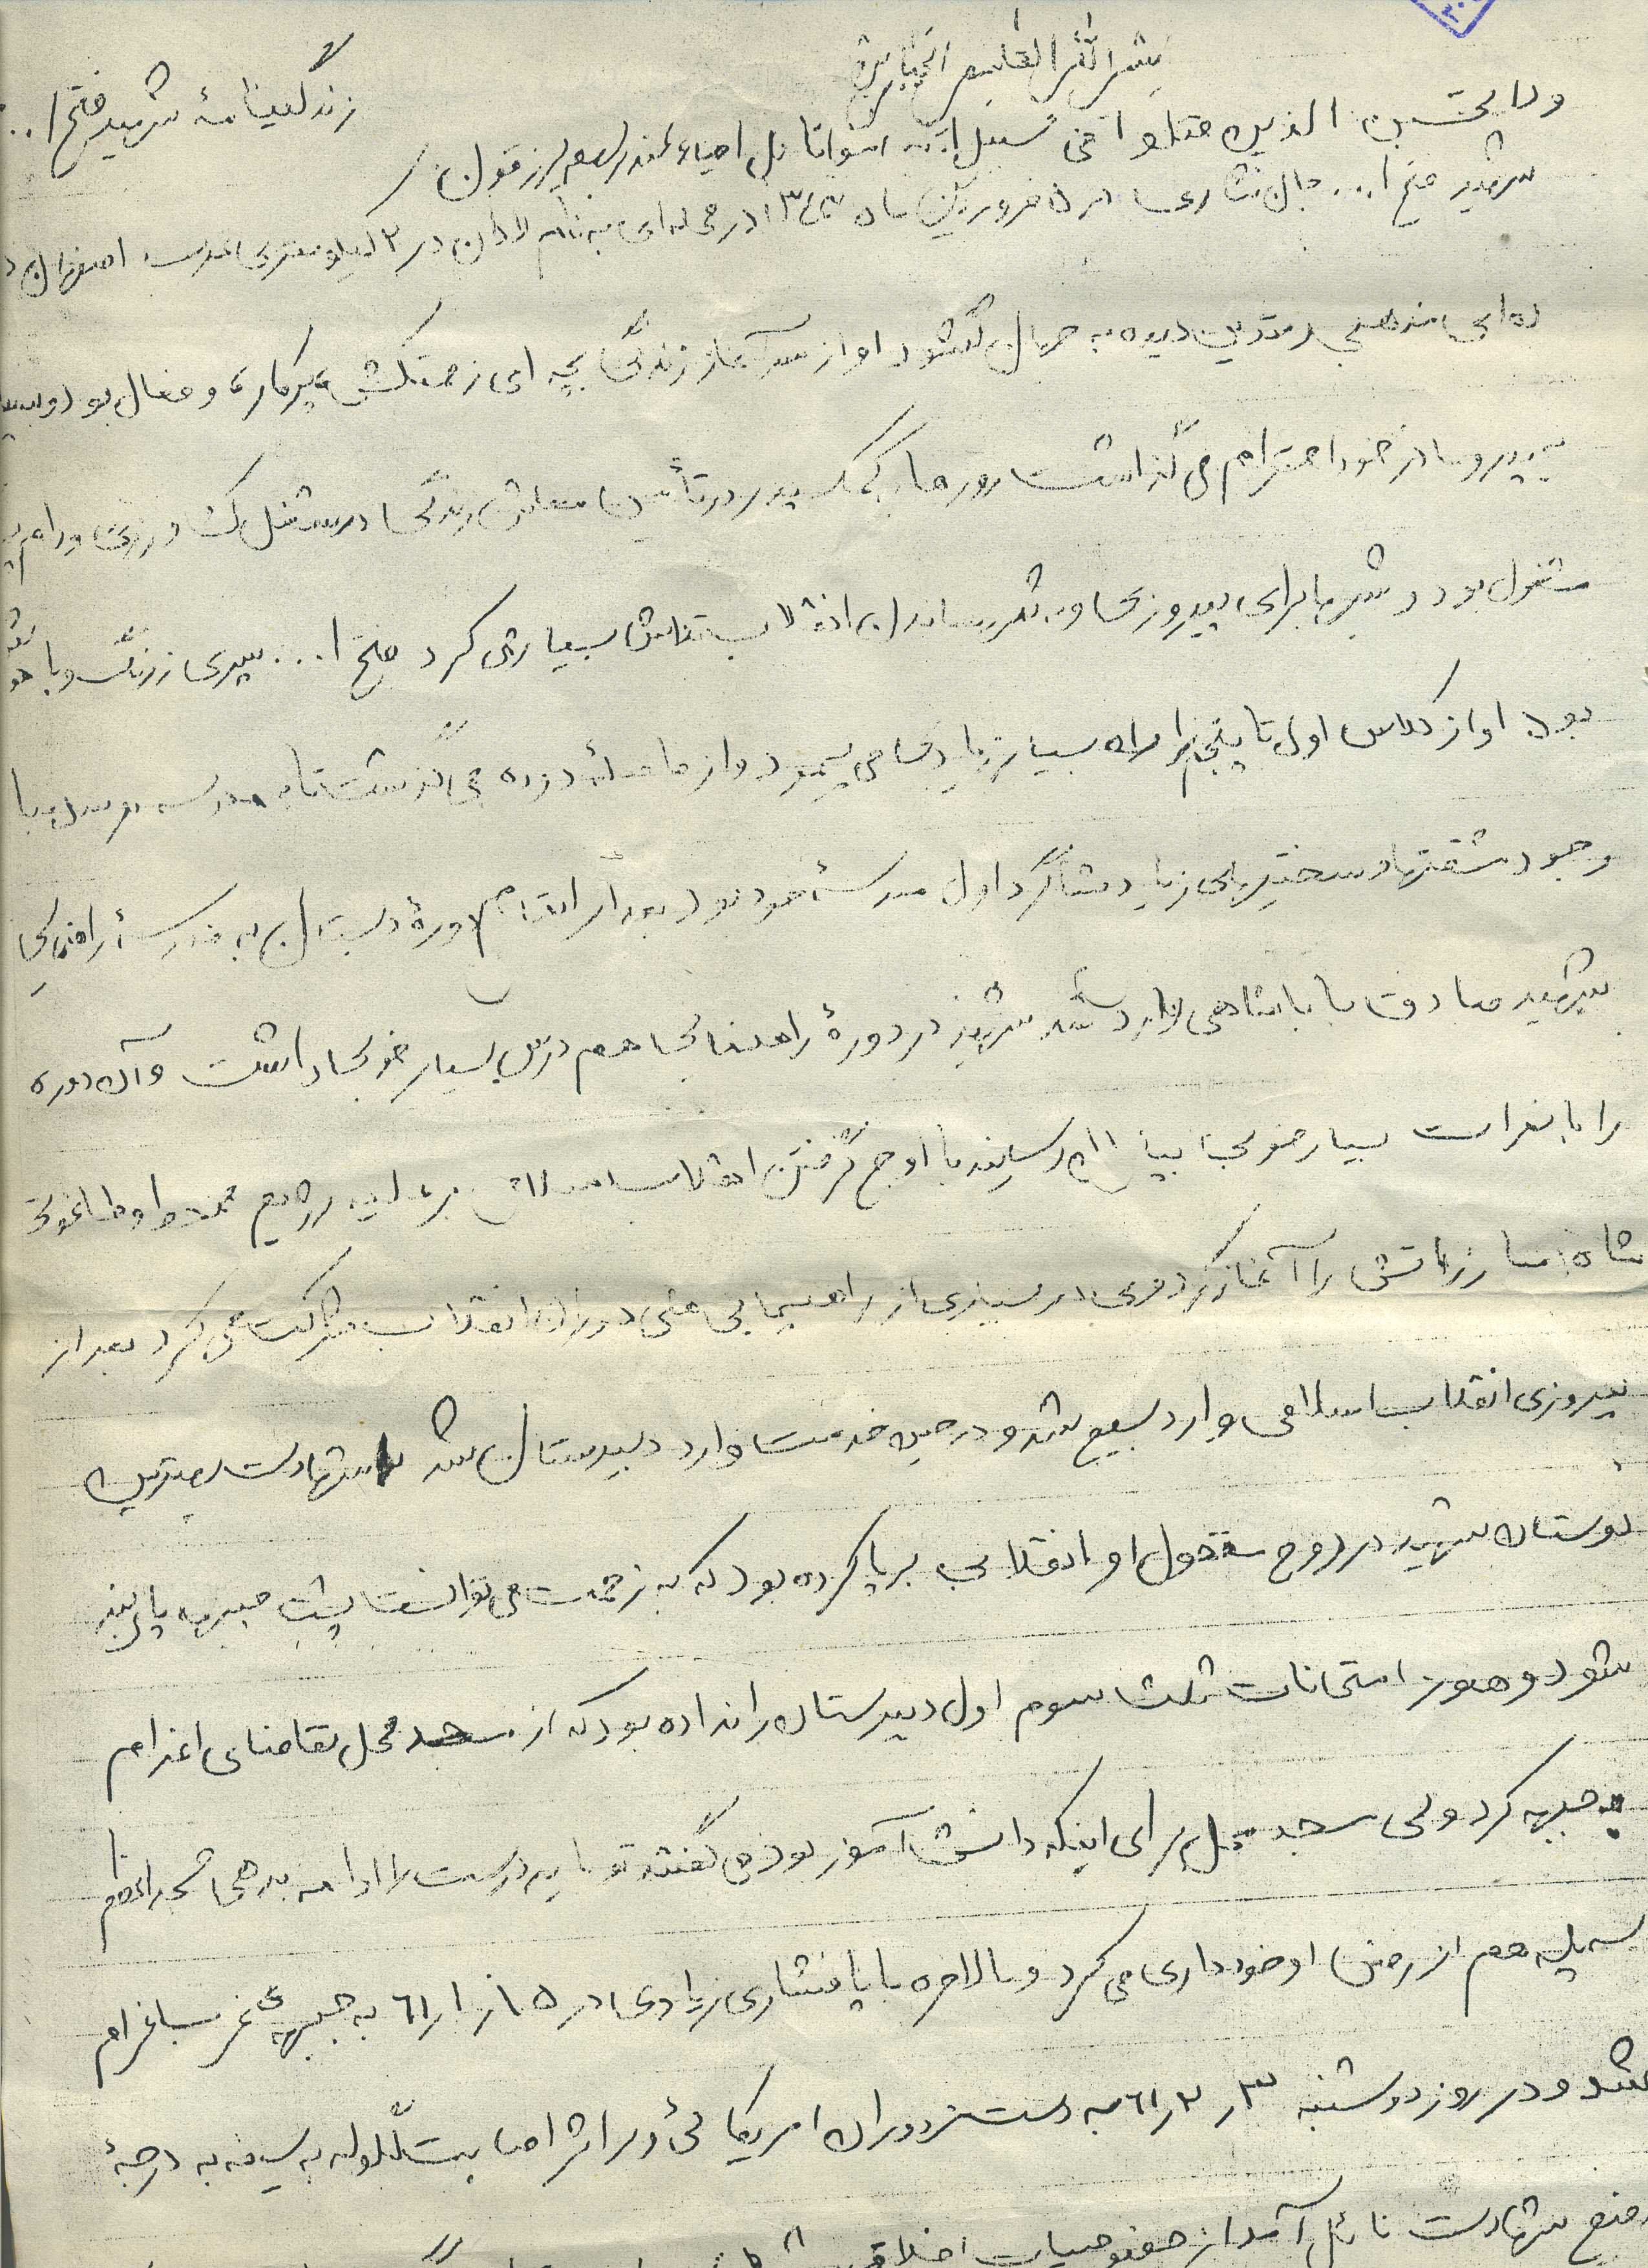 زندگینامهٔ شهید فتح ا...
بسم الله القاسم الجبارین
ولا تحسبن الذین قتلوا فی سبیل الله امواتا بل احیاء عند ربهم یرزقون
شهید فتح ا... جان نثاری در ۵ فروردین ماه ۱۳۴۳ در محله ای به نام لادان در ۲ کیلومتری غرب اصفهان د
ده ای مذهبی و متدین دیده به جهان گشود او از سر آغاز زندگی بچه ای زحمتکش، پرکار، و فعال بود و بسیا
به پدر و مادر خود احترام می گذاشت روزها به کمک پدر در تأمین معاش زندگی در شغل کشاورزی و دام پر
مشغول بود و شبها برای پیروزی و به ثمر رساندن انقلاب تلاش بسیاری کرد فتح ا... پسری زرنگ و با هو
بود او از کلاس اول تا پنجم را راه بسیار زیادی می پیمود و از فاصلهٔ دوره می گذشت تا به مدرسه برسد با
وجود مشقتها و سختیهای زیاد شاگرد اول مدرسهٔ خود بود بعد از اتمام دورهٔ دبستان به مدرسهٔ راهنمایی
شهید صادق باباشاهی وارد شد شهید در دورهٔ راهنمایی هم درس بسیار خوبی داشت و آن دوره
را با نمرات بسیار خوبی به پایان رسانید با اوج گرفتن انقلاب اسلامی بر علیه رژیم محمدرضا و طاغوتی
شاه مبارزاتش را آغاز کرد وی در بسیاری از راهپیمایی های دوران انقلاب شرکت می کرد بعد از
پیروزی انقلاب اسلامی وارد بسیج شد و در حین خدمت وارد دبیرستان شد شهادت بهترین
دوستان شهید در روح متحول او انقلابی برپا کرده بود که به زحمت می توانست پشت جبهه پای بند
شود و هنوز امتحانات ثلث سوم اول دبیرستان را نداده بود که از مسجد محل تقاضای اعزام
به جبهه کرد ولی مسجد محل برای اینکه دانش آموز بود می گفتند تو باید درست را ادامه بدهی
سپاه هم از رفتن او خودداری می کرد و بالاخره با پافشاری زیادی در ۱۵ از ۱ر۶۱ به جبهه ی غرب اعزام
شد و در روز دوشنبه ۳ر۲ر۶۱ به دست مزدوران امریکائی و در اثر اصابت گلوله به سینه به درجهٔ
رفیع شهادت نائل آمد از خصوصیات اخلاقی